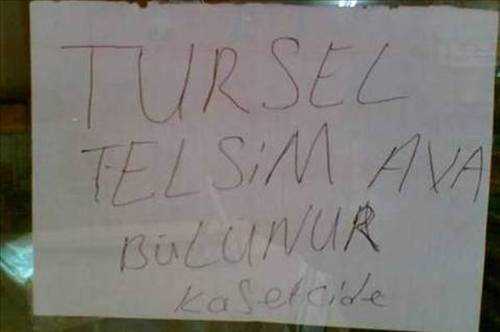 TURSEL
TELSiM AVA
BüLÜNUR
Kasetcide